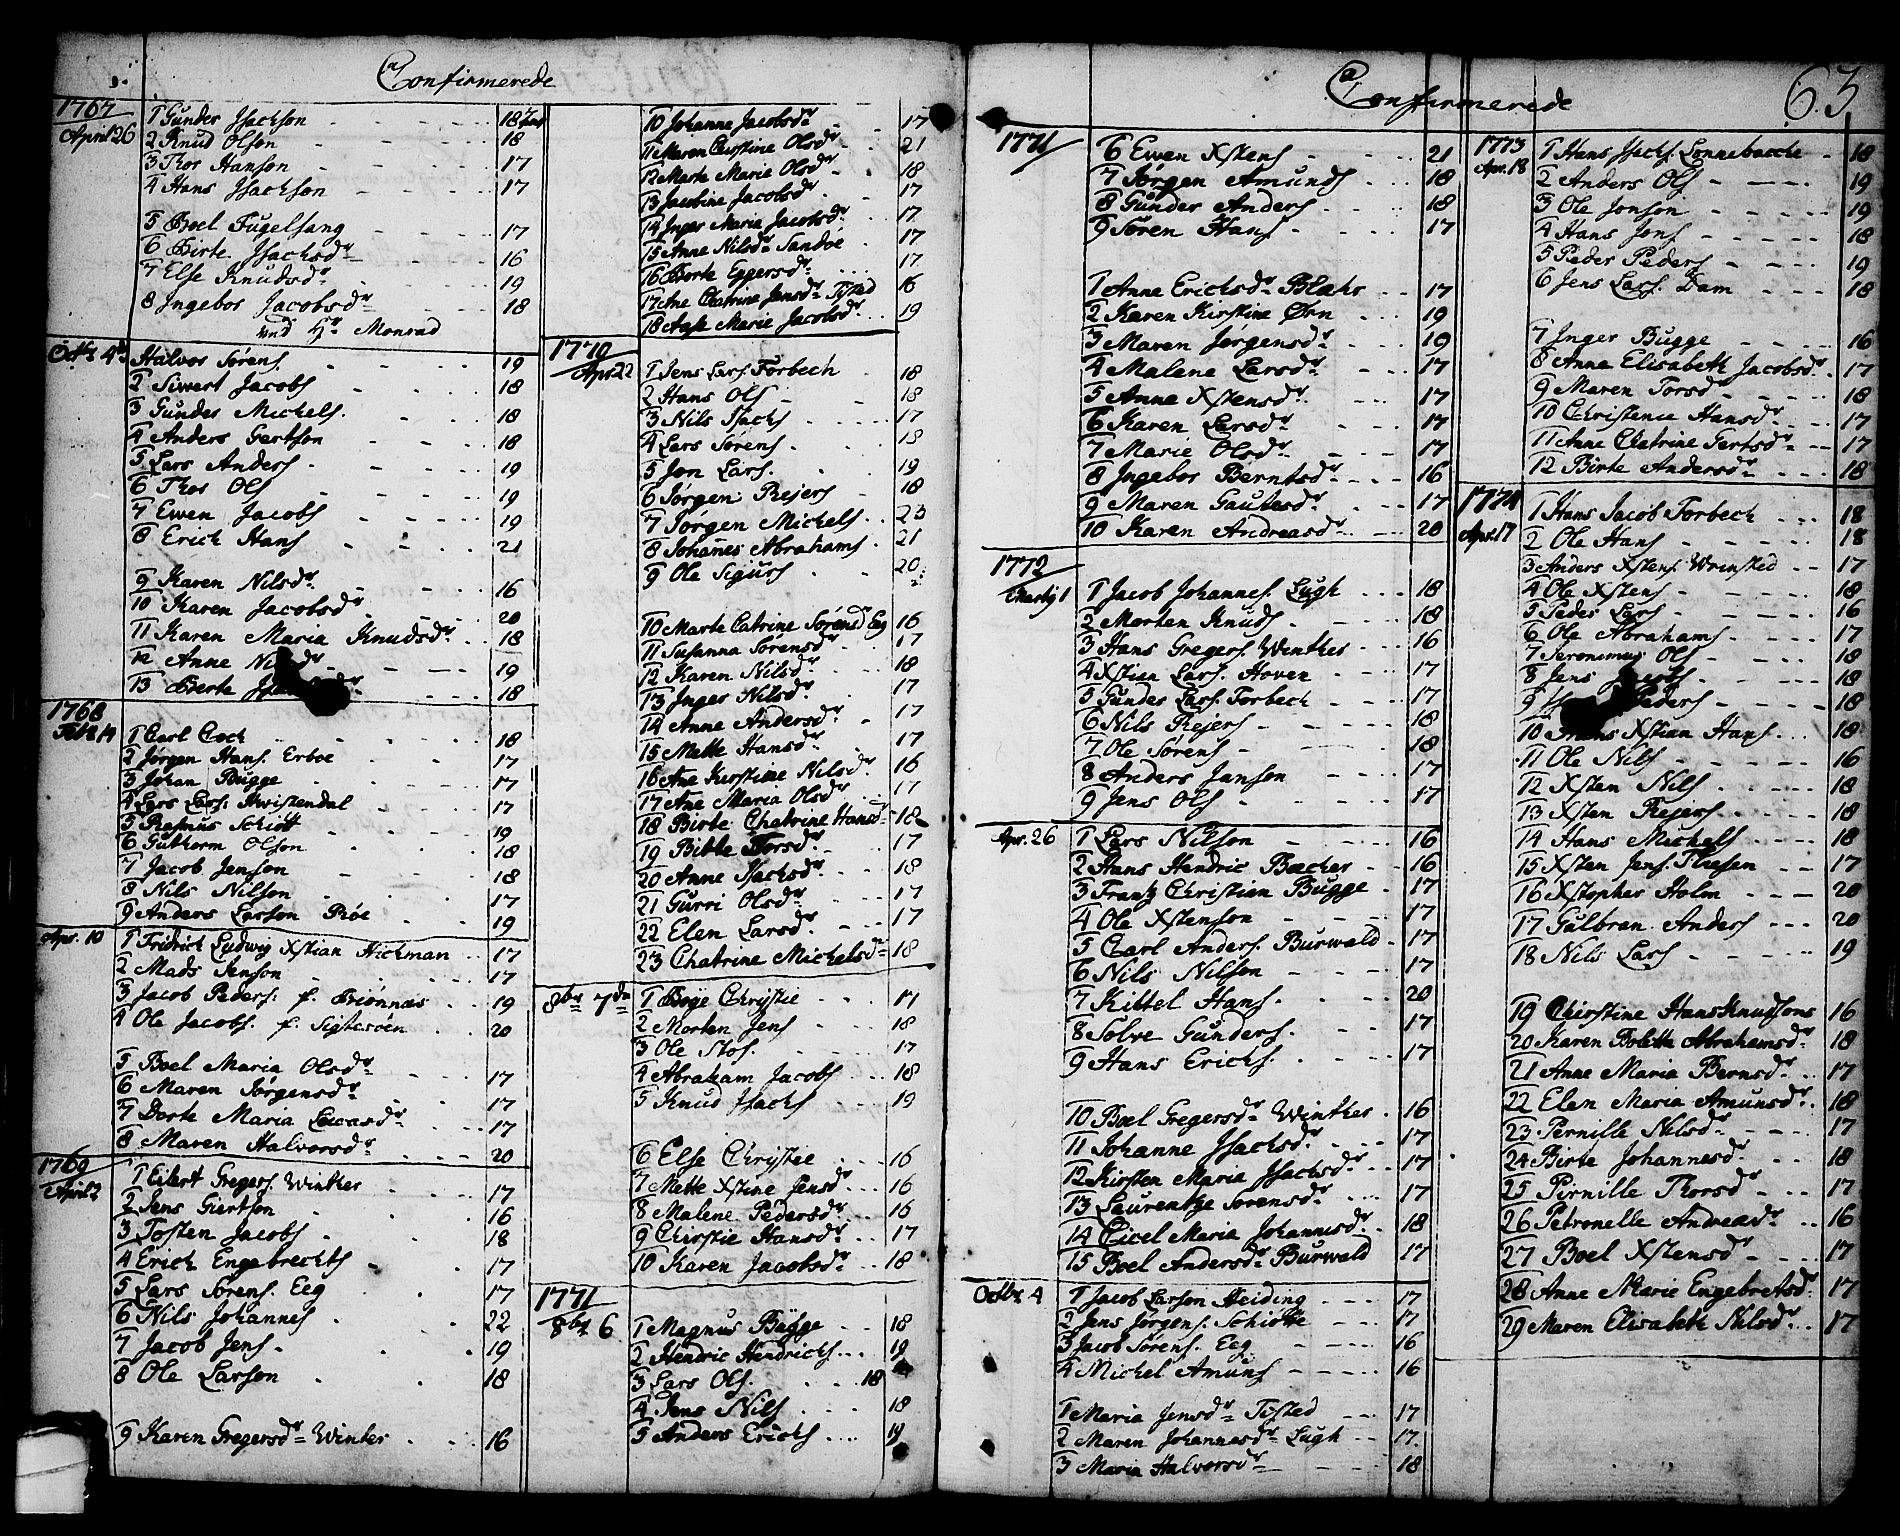 Confirmerede
1767
April 26
1 Gunder Jsachson - - - - 18 aar
2 Knud Olson - - - - 18
3 Thor Hanson - - - - 17
4 Hans Jsachson - - - - 17
5 Boel Fugelsang - - - - 17
6 Birte Jsachsdr - - - - 16
7 Else Knudsdr - - - - 19
8 Ingebor Jacobsdr - - - 18
und Hr Monrad
Octbr 4de
Halvor Sørens. - - - - 19
2 Siwert Jacobs - - - 18
3 Gunder Michels. - - - 18
4 Anders Gertson - - - 18
5 Lars Anders. - - - 19
6 Thor Ols - - - 19
7 Ewen Jacobs - - - 19
8 Erich Hans - - - 21
9 Karen Nilsdr. - - - 16
10 Karen Jacobsdr - - - 20
11 Karen Maria Knudsdr. - 18
12 Anne dr - - - 19
13 Berte - - - 18
1768
Febr. 14
1 Carl Coch - - - 18
2 Jørgen Hans. Erboe - - 17
3 Johan Bugge - - - 17
4 Lars Lars. Awistendal - - 17
5 Rasmus Schiøtt - - - 19
6 Guthorm Olson - - - 18
7 Jacob Jenson - - - 18
8 Nils Nilson - - - 17
9 Anders Larson Røe - - 19
Apr. 10
1 Fridrich Ludwig Xstian Hickman - - 17
2 Mads Jenson - - - 17
3 Jacob Peders. f. Biønnæs - - 19
4 Ole Jacobs. f. Sigtesøen - - 20
5 Boel Maria Olsdr - - - 17
6 Maren Jørgensdr - - - 17
7 Dorte Maria Lucasdr - - 17
8 Maren Halvorsdr - - - 20
1769
April 2
1 Eilert Gregers. Winther - - 17
2 Jens Giertson - - - 16
3 Tosten Jacobs - - - 18
4 Erich Engebrechts - - 17
5 Lars Sørens. Eeg - - 17
6 Nils Johannes - - 22
7 Jacob Jens - - - 19
8 Ole Larson - - - 18
9 Karen Gregersdr Winter - - 16
10 Johanne Jacobsdr - - 17
11 Maren Chirstine Olsdr - - 21
12 Marte Marie Olsdr - - 18
13 Jacobine Jacobsdr - - 17
14 Inger Maria Jacobsdr. - - 17
15 Anne Nilsdr Sandøe - - 17
16 Dorte Eggersdr - - - 17
17 Ane Chatrine Jensdr Tysted 16
18 Aase Marie Jacobsdr - - 19
1770
Apr. 22
1 Jens Lars. Forbech - - 18
2 Hans Ols - - 18
3 Nils Jsachs - - 17
4 Lars Sørens - - 18
5 Jon Lars. - - 19
6 Jørgen Rejers - - 18
7 Jørgen Michels - - 23
8 Johanes Abrahams - 21
9 Ole Sigurs - - 20
10 Marte Catrine Sørensdr Eeg 16
11 Susanna Sørensdr - - 17
12 Karen Nilsdr - - 18
13 Inger Nilsdr. - - 17
14 Anne Andersdr - - 17
15 Mette Hansdr - - 17
16 Ane Kirstine Nilsdr 16
17 Ane Maria Olsdr - - 17
18 Birte Chatrine Hansdr 18
19 Birte Torsdr. - - 17
20 Anne Jsachsdr - - 18
21 Gurri Olsdr - - 17
22 Elen Larsdr. - - 17
23 Chatrine Michelsdr 18
8br 7de
1 Boye Chrystie - - 17
2 Morten Jens - - 18
3 Ole Stof. - - 17
4 Abraham Jacobs - - 18
5 Knud Jsachs - - 19
6 Else Chrystie - - 16
7 Mette Xstine Jensdr - - 16
8 Malene Pedersdr - - 16
9 Chirstie Hansdr - - 17
10 Karen Jacobsdr - - 18
1771
8br 6
1 Magnus Bugge - - 18
2 Hendric Hendrichs - - 19
3 Lars Ols. - - 18
4 Jens Nils - - 18
5 Anders Erichs - - 19
Confirmerede
63
1771
6 Ewen Xstens - - 21
7 Jørgen Amunds - - 18
8 Gunder Anders - - 18
9 Søren Hans - - 17
1 Anne Erichsdr Blahr - - 17
2 Karen Kirstine Ørn - - 19
3 Maren Jørgensdr - - 19
4 Malene Larsdr - - 17
5 Anne Xstensdr. - - 17
6 Karen Larsdr - - 17
7 Marie Olsdr - - 17
8 Ingebor Berntsdr - - 16
9 Maren Gautesdr - - 17
10 Karen Andreasdr - - 20
1772
Martij 1
1 Jacob Johannes. Lugh - - 18
2 Morten Knuds - - 18
3 Hans Gregers. Winther - - 16
4 Xstian Lars. Hoven - - 17
5 Gunder Lars. Forbech - - 17
6 Nils Rejers - - 18
7 Ole Sørens - - 18
8 Anders Janson - - 17
9 Jens Ols - - 17
Apr. 26
1 Lars Nilson - - 16
2 Hans Hendric Becher - - 16
3 Frantz Christian Bugge - 17
4 Ole Xstenson - - 17
5 Carl Anders. Burwald - 17
6 Nils Nilson - - 17
7 Kittel Hans. - - 20
8 Solve Gunders. - - 17
9 Hans Erichs. - - 17
10 Boel Gregersdr Winther. 16
11 Johanne Jsachsdr. - - 17
12 Kirsten Maria Jsachsdr - - 17
13 Laurentze Sorensdr - - 17
14 Cicel Maria Johannisdr. - 18
15 Boel Andersdr Burwald 17
Octbr. 4
1 Jacob Larson Heiding - - 17
2 Jens Jørgens. Schiøtte - - 17
3 Jacob Sørens. Eeg - - 16
4 Michel Amuns - - 16
1 Maria Jensdr Tisted - - 17
2 Maren Johannesdr Lugh - - 17.
3 Maria Halvorsdr - - 18
1773
Apr. 18
1 Hans Jsachs. Lonnebacche - 18
2 Anders Ols - - 19
3 Ole Jonson - - 19
4 Hans Jons - - 18
5 Peder Peders - - 19
6 Jens Lars. Dam - - 18
7 Inger Bugge - - 16
8 Anne Elisabeth Jacobsdr. 17
9 Maren Torsdr - - 18
10 Christence Hansdr - 17
11 Anne Chatrine Gertsdr - - 17
12 Birte Andersdr - - 18
1774
Apr. 17
1 Hans Jacob Forbech - - 18
2 Ole Hans - - 18
3 Anders Xstens. Wrinsted - - 17
4 Ole Xstens - - 18
5 Peder Lars - - 16
6 Ole Abrahams - - 17
7 Jeronimus Ols - - 18
8 Jens - - 18
9 Peders - - 18
10 Hans Xstian Hans. - - 18
11 Ole Nils - - 16
12 Xsten Nils - - 18
13 Xsten Rejers - - 18
14 Hans Michels - - 18
15 Xsten Jens. Flaasen - - 17
16 Xstopher Holm - - 20
17 Gulbran Anders - - 20
18 Nils Lars - - 19
19 Chirstine Hans Knudsons 16
20 Karen Bolette Abrahamsdr 18
21 Anne Maria Bernsdr. - 17
22 Elen Maria Amunsdr. 18
23 Pernille Nilsdr - - 17
24 Birte Johannesdr. - - 18
25 Pirnille Thorsdr - - 17
26 Petronelle Andreasdr - - 16
27 Boel Xstensdr - - 17
28 Anne Marie Engebretsdr 17
29 Maren Elisabeth Nilsdr - 17